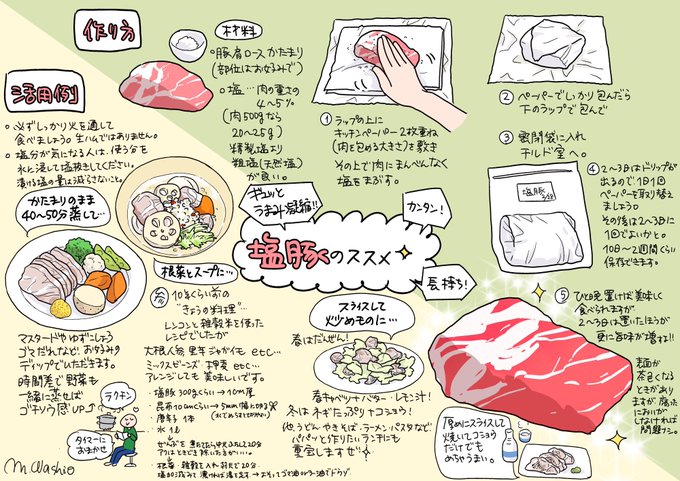 作り方
材料
・豚肩ロースかたまり
(部位はお好みで)
・塩…肉の重さの
4~5%
(肉500gなら
20~25g)
精製塩より
粗塩(天然塩)
が良い。
① ラップの上に
キッチンペーパー2枚重ね
(肉を包める大きさ)を敷き
その上で肉にまんべんなく
塩をまぶす。
② ペーパーでしっかり包んだら
下のラップで包んで
③ 密閉袋に入れ
チルド室へ。
④ 2~3日はドリップが
出るので1日1回
ペーパーを取り替え
ましょう。
その後は2~3日に
1回でよいかと。
10日~2週間くらい
保存できます。
塩豚
⑤ ひと晩置けば美味しく
食べられますが
2~3日は置いたほうが
更に旨味が増す!!
表面が
茶色くなる
ときがあり
ますが腐った
においがし
なければ
問題ナシ。
ギュッと
うまみ凝縮!!
カンタン!
長持ち!
塩豚のススメ
活用例
・必ずしっかり火を通して
食べましょう。生ハムではありません。
・塩分が気になる人は、使う分を
水に浸して塩抜きしてください。
漬ける塩の量は減らさないこと。
かたまりのまま
40~50分蒸して…
マスタードやゆずこしょう
ゴマだれなど、お好みの
ディップでいただきます。
時間差で野菜も
一緒に蒸せば
ゴチソウ感UP↑
ラクチン
タイマーに
おまかせ
根菜とスープに…
10年くらい前の
"きょうの料理"…
レンコンと雑穀米を使った
レシピでしたが
大根、人参、里芋、ジャガイモ etc…
ミックスビーンズ、押麦 etc…
アレンジしても美味しいです。
・塩豚 300gくらい→1cm厚
・昆布10cmくらい→5mm幅に切る
・唐辛子 1本
・水 1ℓ
スライスして
炒めものに…
春はだんぜん!
春キャベツ+バター・レモン汁!
冬はネギたっぷり+コショウ!
他、うどん、やきそば・ラーメン・パスタなど
パパッと作りたいランチにも
重宝しますぜ
厚めにスライスして
焼いてコショウ
だけでも
めちゃうまい。
m.Washio